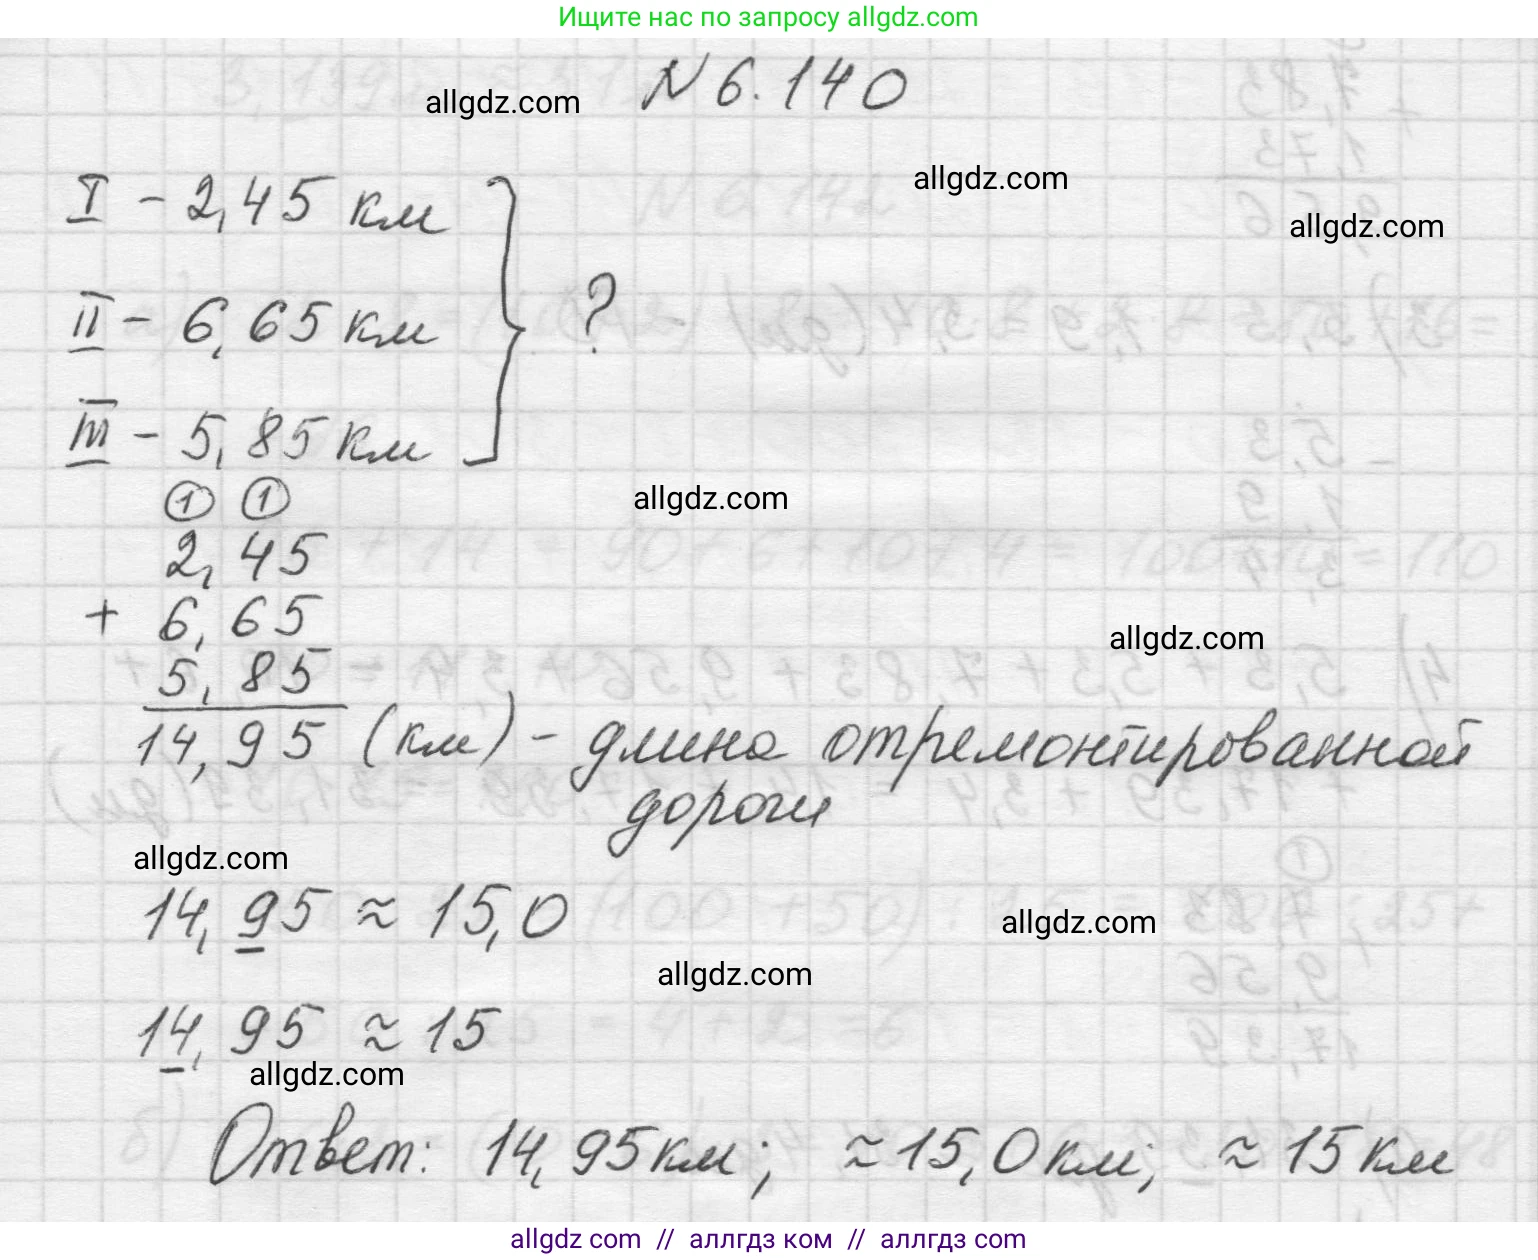 Ищите нас по запросу allgdz.com
allgdz.com
N 6.140
allgdz.com
I - 2,45 км
allgdz.com
II - 6,65 км
?
III - 5,85 км
1 1
allgdz.com
2,45
+ 6,65
allgdz.com
5,85
14,95 (км) - длина отремонтированной
дороги
allgdz.com
14,95 ≈ 15,0
allgdz.com
allgdz.com
14,95 ≈ 15
allgdz.com
Ответ: 14,95 км; ≈ 15,0 км; ≈ 15 км
allgdz com // аллгдз ком // аллгдз com